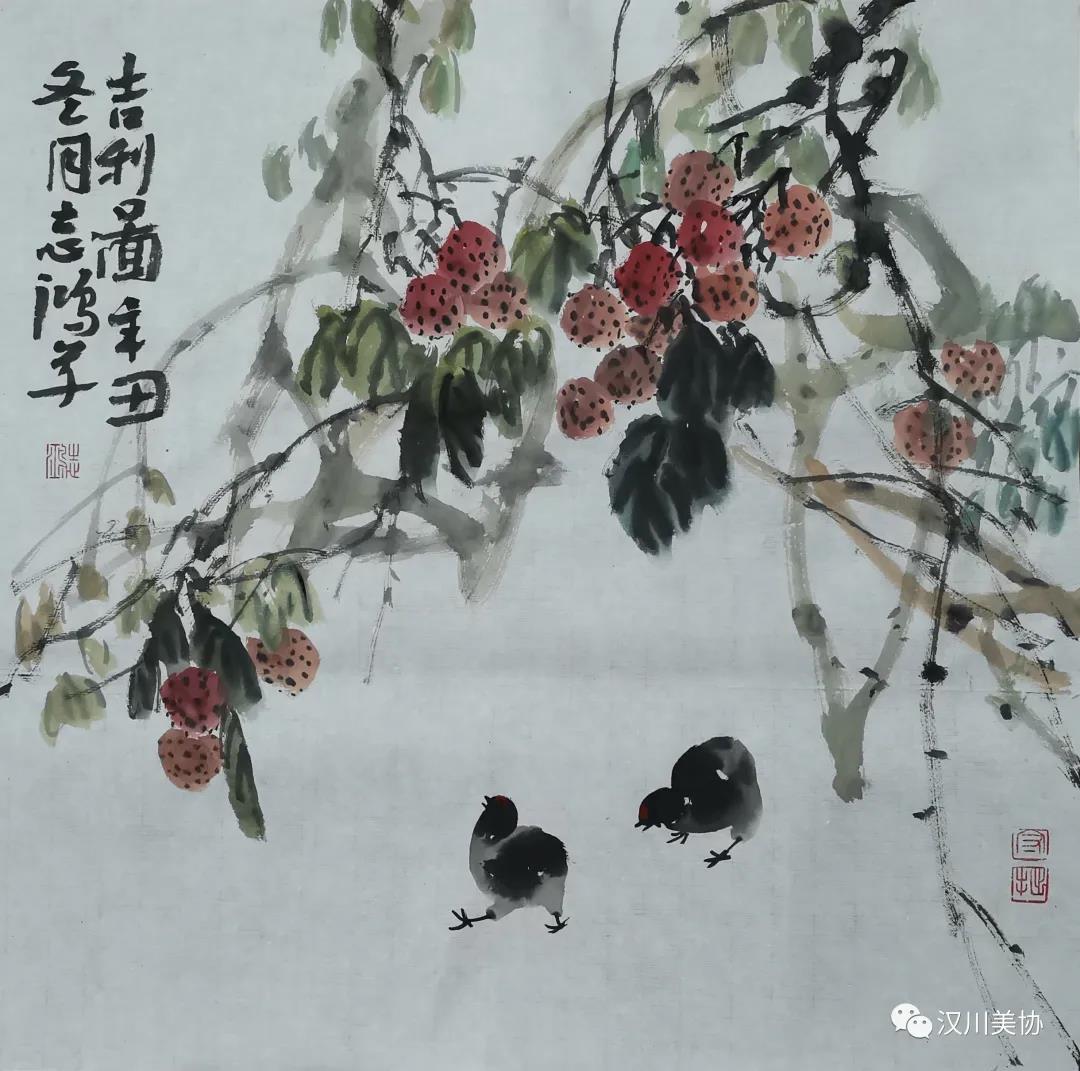 吉利圖辛丑
冬月志鸿
守拙
汉川美协